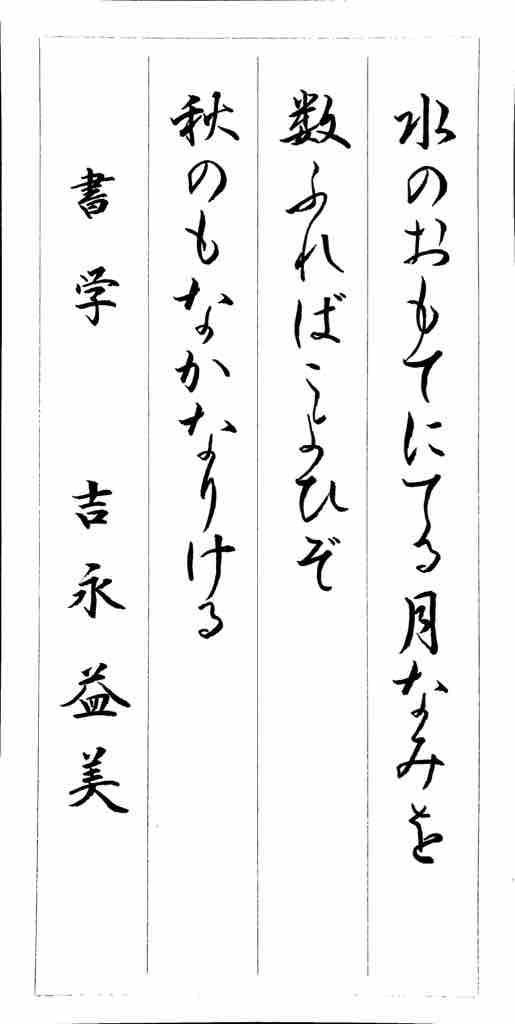 水のおもてにてる月なみを
数ふればこよひぞ
秋のもなかなりける
書学 吉永益美